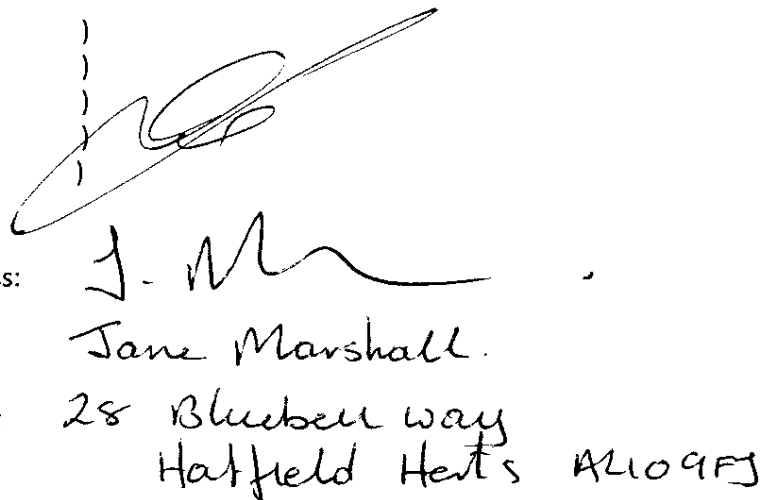 )
)
)
)
)
s: J. M
Jane Marshall.
: 28 Bluebell way
Hatfield Herts AL10 9FJ